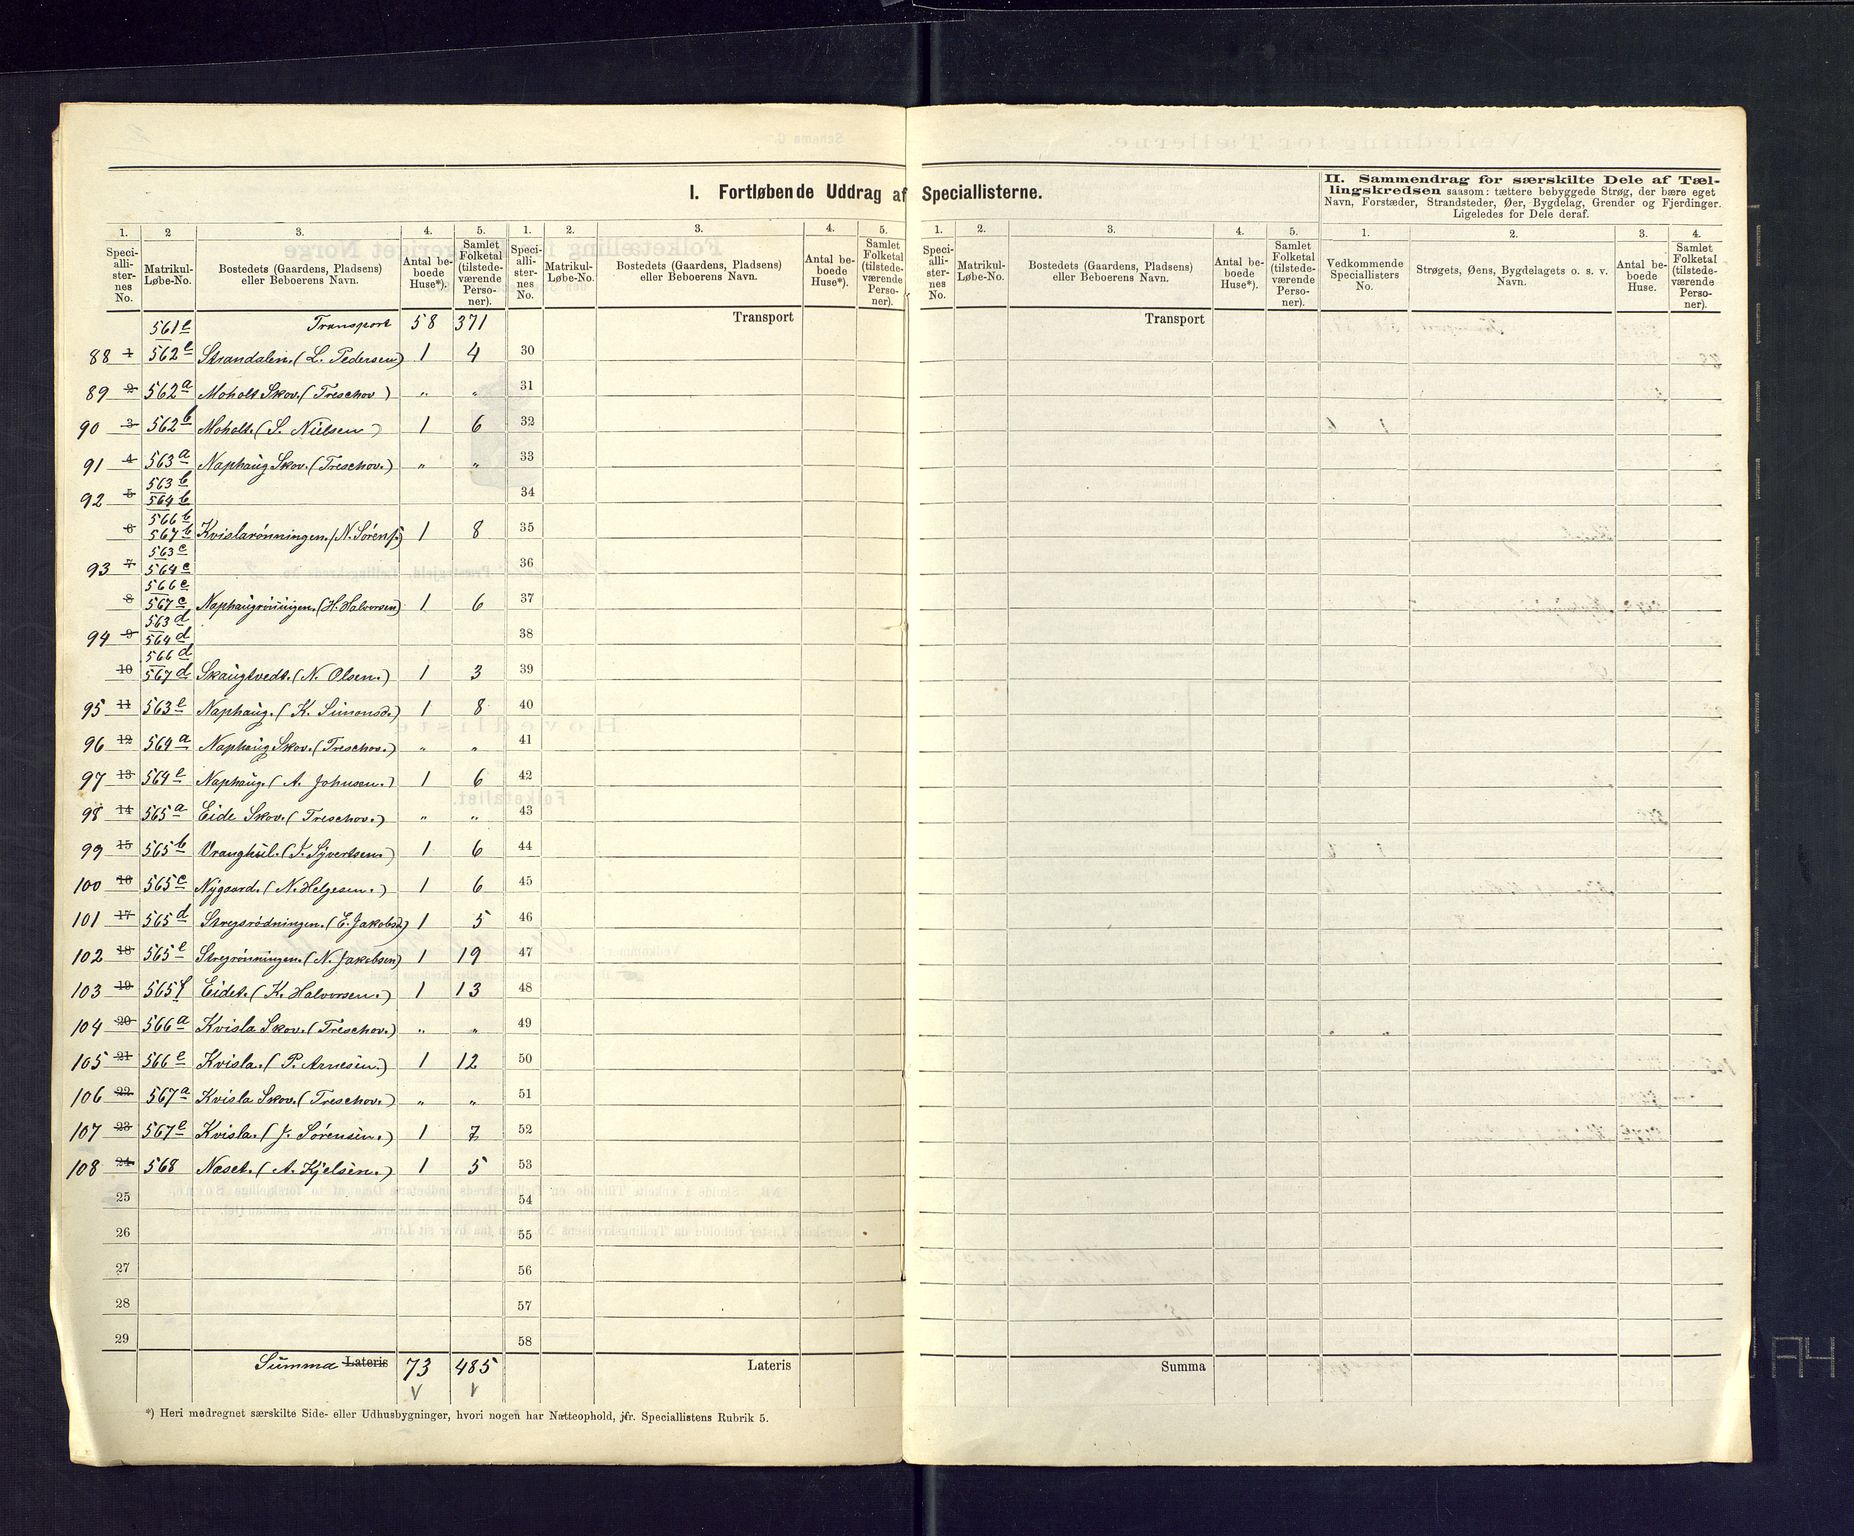 I. Fortløbende Uddrag af Speciallisterne.
II. Sammendrag for særskilte Dele af Tællingskredsen saasom: tættere bebyggede Strøg, der bære eget
Navn, Forstæder, Strandsteder, Øer, Bygdelag, Grender og Fjerdinger.
Ligeledes for Dele deraf.
1. 2 3. 4. 5. 1. 2. 3. 4. 5. 1. 2. 3. 4. 5. 1. 2. 3. 4.
Speciallisternes No. Matrikul-Løbe-No. Bostedets (Gaardens, Pladsens) eller Beboerens Navn. Antal beboede Huse*). Samlet Folketal (tilstedeværende Personer).
Speciallisternes No. Matrikul-Løbe-No. Bostedets (Gaardens, Pladsens) eller Beboerens Navn. Antal beboede Huse*). Samlet Folketal (tilstedeværende Personer).
Speciallisternes No. Matrikul-Løbe-No. Bostedets (Gaardens, Pladsens) eller Beboerens Navn. Antal beboede Huse*). Samlet Folketal (tilstedeværende Personer).
Vedkommende Speciallisters No. Strøgets, Øens, Bygdelagets o. s. v. Navn. Antal beboede Huse. Samlet Folketal (tilstedeværende Personer).
561e Transport 58 371 Transport Transport
88 1 562e Strandalen. (L. Pedersen) 1 4 30
89 2 562a Moholt Skov. (Treschov) " " 31
90 3 562b Moholt. (S. Nielsen) 1 6 32
91 4 563a Naphaug Skov. (Treschov.) " " 33
92 5 563b 564b 34
6 566b 567b Kvislarønningen. (N. Sørens.) 1 8 35
93 7 563c 564c 36
8 566c 567c Naphaugrönningen. (H. Halvorsen) 1 6 37
94 9 563d 564d 38
10 566d 567d Skaugtvedt. (N. Olsen.) 1 3 39
95 11 563e Naphaug. (K. Simonsd.) 1 8 40
96 12 564a Naphaug Skov. (Treschov.) " " 41
97 13 564e Naphaug. (A. Johnsen.) 1 6 42
98 14 565a Eide Skov. (Treschov.) " " 43
99 15 565b Vranghül. (J. Syvertsen.) 1 6 44
100 16 565c Nygaard. (N. Helgesen.) 1 6 45
101 17 565d Stregsrødningen. (E. Jakobsd.) 1 5 46
102 18 565e Stregrönningen. (N. Jakobsen) 1 19 47
103 19 565f Eidet. (K. Halvorsen.) 1 13 48
104 20 566a Kvisla Skov. (Treschov.) " " 49
105 21 566e Kvisla. (P. Arnesen.) 1 12 50
106 22 567a Kvisla Skov. (Treschov.) " " 51
107 23 567e Kvisla. (J. Sørensen.) 1 7 52
108 24 568 Næset. (A. Kjelsen.) 1 5 53
25 54
26 55
27 56
28 57
29 58
Summa Lateris 73 485 Lateris Summa
*) Heri medregnet særskilte Side- eller Udhusbygninger, hvori nogen har Natteophold, jfr. Speciallistens Rubrik 5.